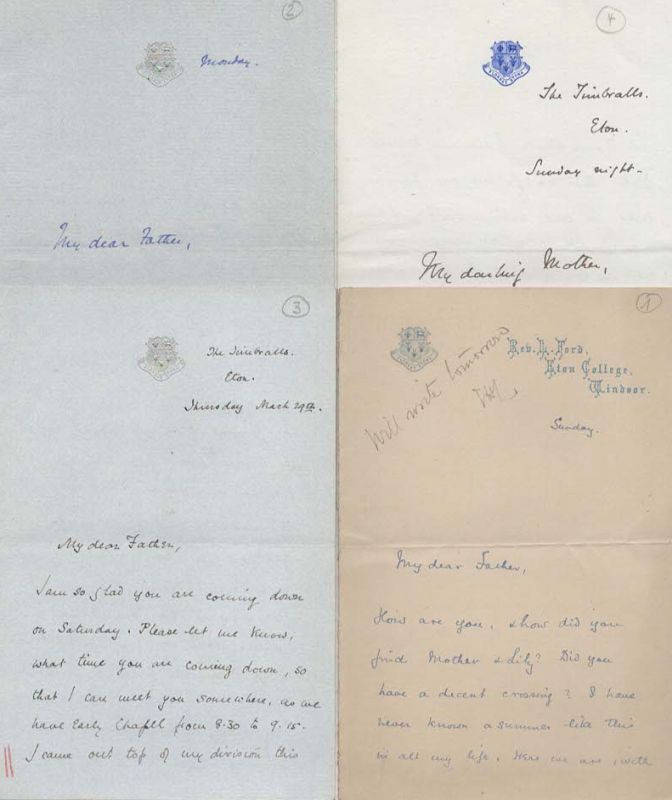 2
Monday.
My dear Father,
4
FLOREAT ETONA
The Timbralls.
Eton.
Sunday night.
My darling Mother,
3
The Timbralls.
Eton.
Thursday March 29th.
My dear Father,
I am so glad you are coming down
on Saturday. Please let me know,
what time you are coming down, so
that I can meet you somewhere, as we
have Early Chapel from 8.30 to 9.15.
I came out top of my division this
1
Rev. L. Ford,
Eton College,
Windsor.
Will write tomorrow
Sunday.
My dear Father,
How are you, & how did you
find Mother & Lily? Did you
have a decent crossing? I have
never known a summer like this
in all my life. Here we are, with